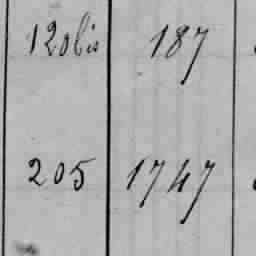 120bis 187
205 1747